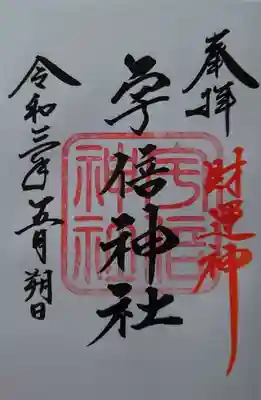 奉拝
財運神
宇倍神社
宇倍
神社
令和三年五月朔日